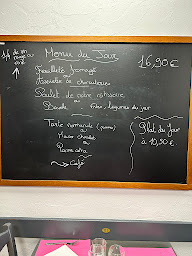 Menu du Jour
16,90€
Feuilleté fromage
ou
Assiette de charcuterie
Poulet de notre rôtissoire
ou
Dinde
frites, légumes du jour
Tarte normande (pomme)
ou
Mousse chocolat
ou
Panna cotta
→ Café
Plat du Jour
à 10,90€